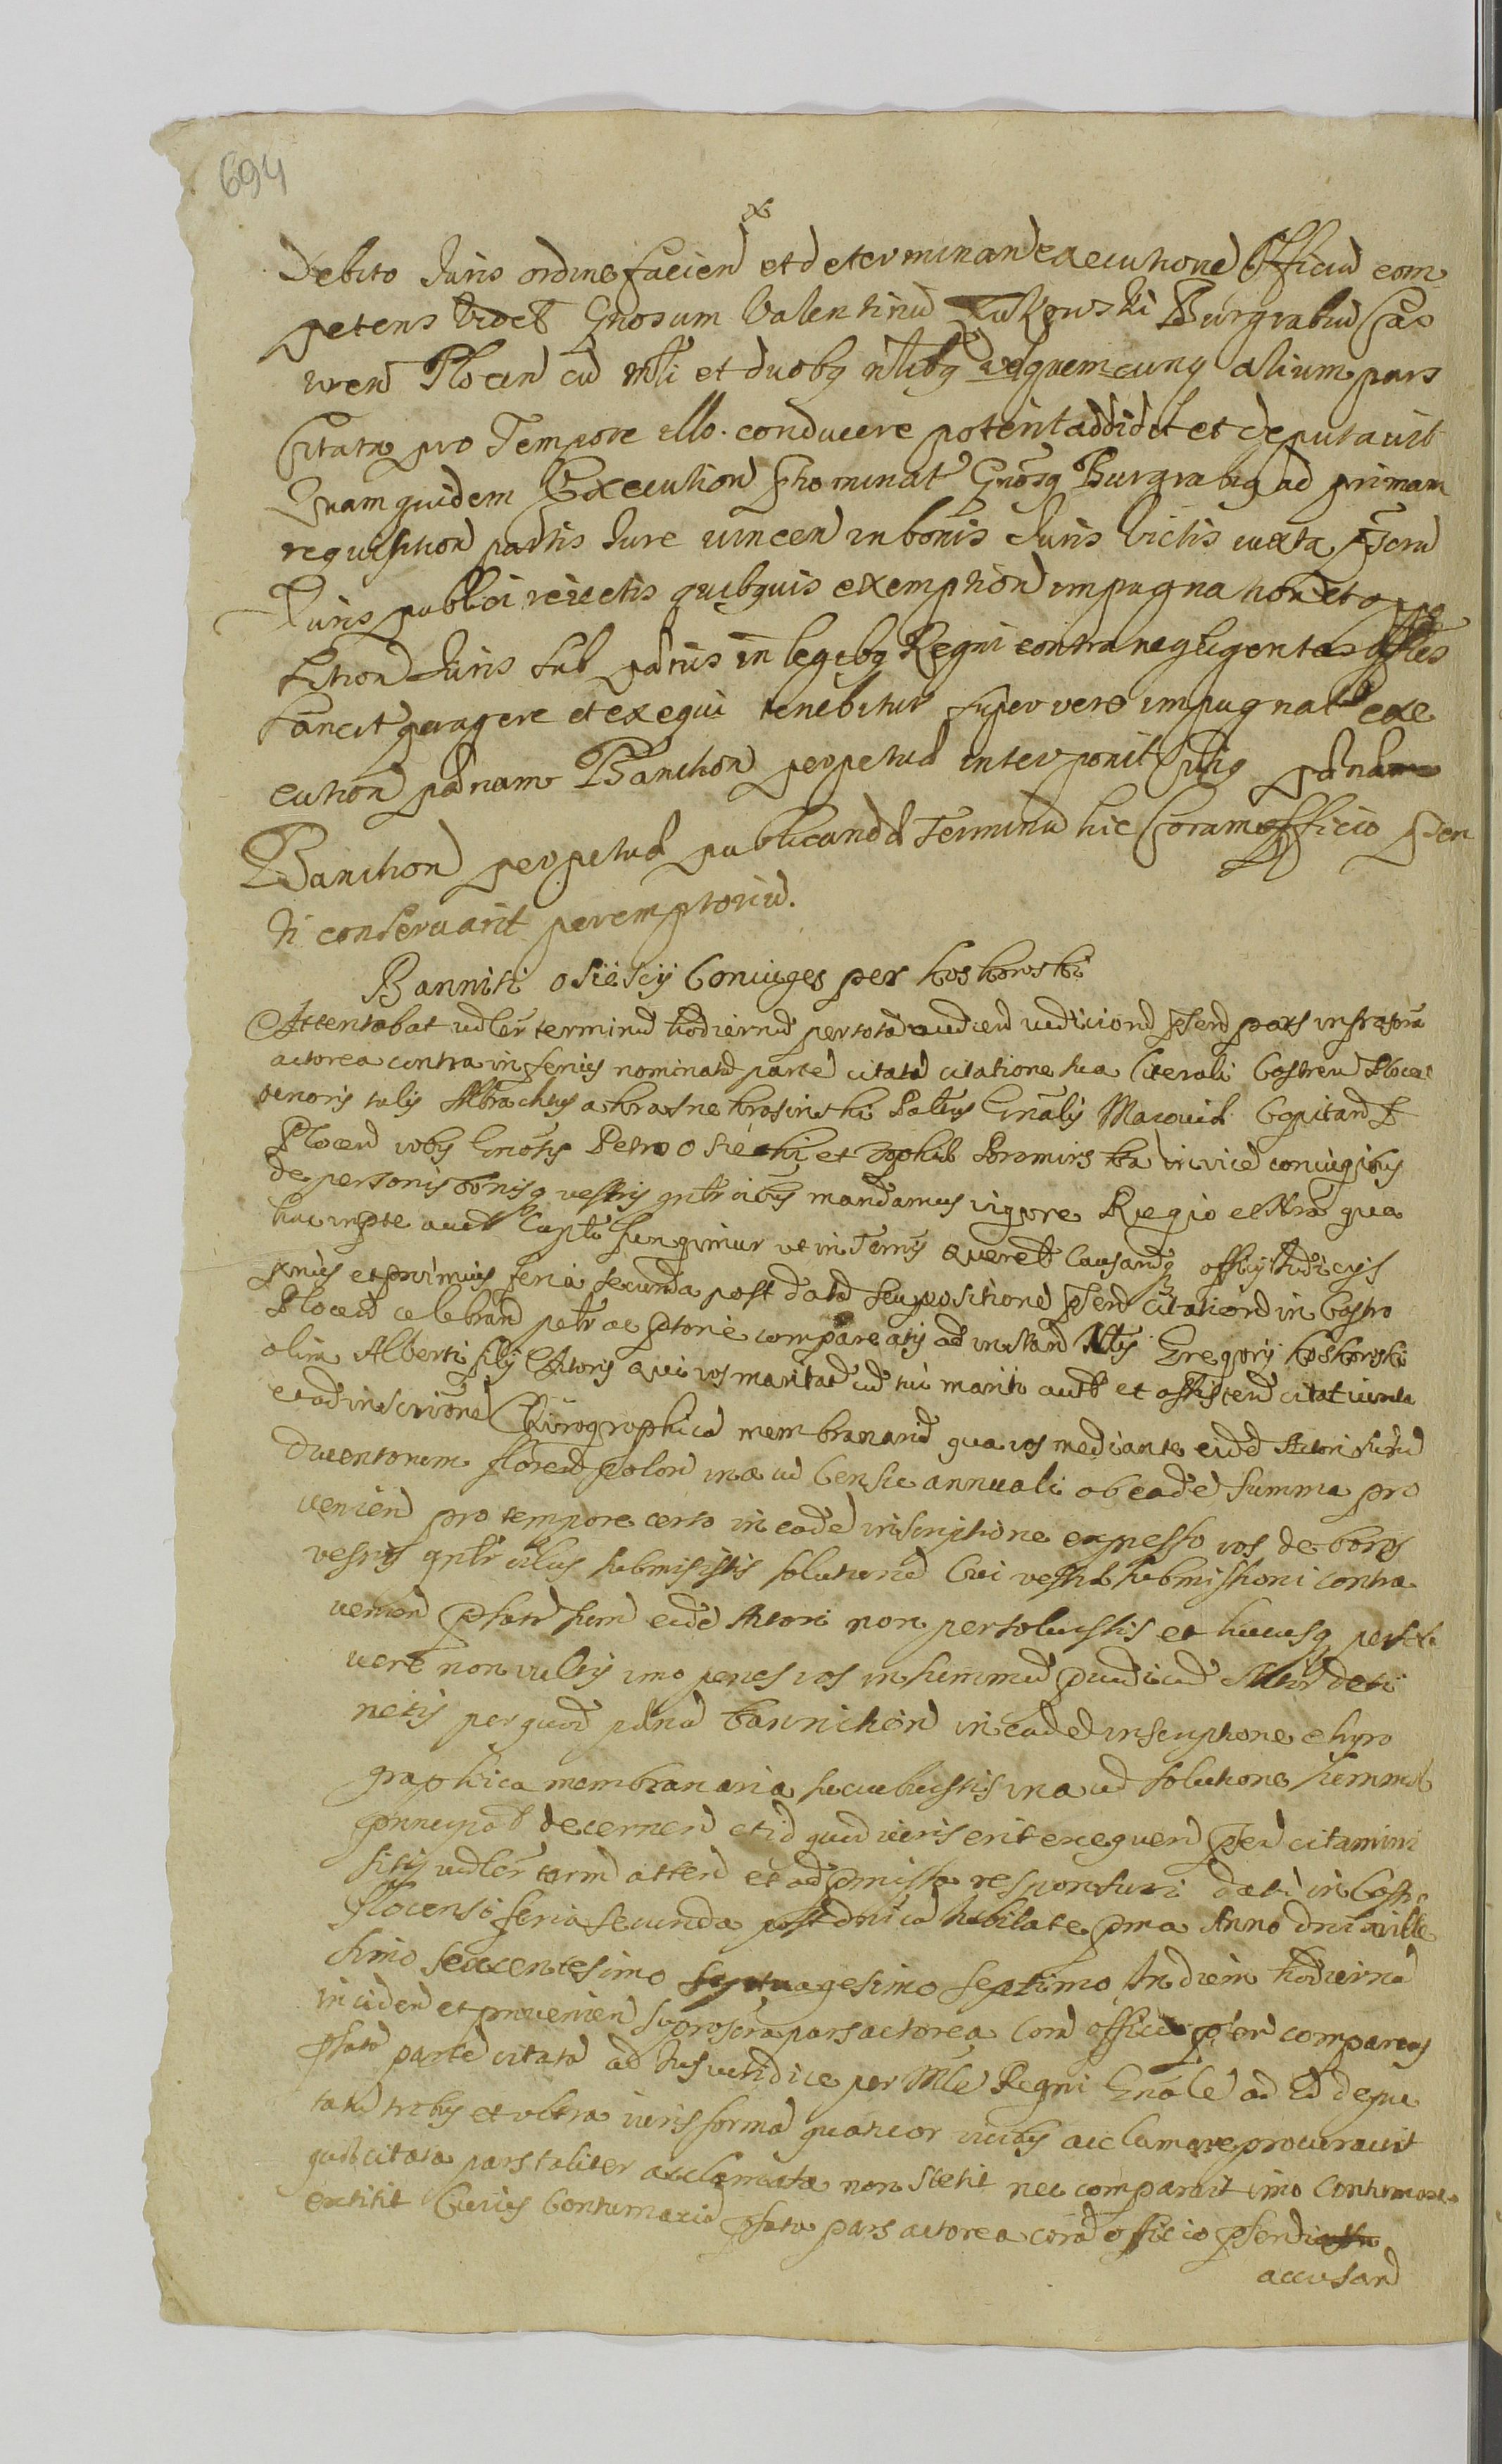 694
Debito Juris ordine facien et determinan executione Officiu com
petens videt Gnosum Valentinu Zukowski Burgrabiu Cas
tren Plocen cu mli et duobq nlibq vel quemcunq alium pars
Citata pro Tempore illo conducere poterit addidit et deputavit
Quam quidem Execution Pnominat Gnosq Burgrabiq ad primam
requisition partis Jure vincen in bonis Juris victis iuxta
Juris publici reiectis quibquis exemption impugnation et oppo
sition Juris sub pænis in legibq Regni contra negligentes offles
sancit peragere et exequi tenebitur super vero impugnat exe
cution pænam Banition perpetuæ interponit Cuiq pænam
Banition perpetuæ publicandæ Terminu hic Coram officio Psen
ti conservavit peremptoriu.
Banniti Osiescy Coniuges per Koskowski
Attentabat iudler terminu hodiernu per totâ audien iudiciorû psen pars infrascra
actorea contra inferius nominatâ partê citatâ citatione sua literali Castren Plocen
tenoris talis Albrachtus a Krasne Krasinski Palus Gnalis Masoviæ Capitan
Plocen vobis Gnosis Petro Osiecki et Zophiæ Sromirska invice coniugibus
de personis bonisq vestris gnlr oibus mandamus vigore Regio et Nra qua
hac in pte autt Capli fungimur ut in Termis Querel Causarûq officij Judicijs
pnius et primius feria secunda post datâ seu positione psen citationû in Castro
Plocen celebran petr ac ptorie compareatis ad instan Nlis Gregorij Koskowski
olim Alberti filij Actoris qui vos maritatâ cû tui mariti autte et assisten citat iuxta
et ad inscrione Chirographicâ membranariâ qua vos mediante eidê Actori sumâ
Ducentorum floren polon una cû Censu annuali ab eadê summa pro
venien pro tempore certo in eadê inscriptione expresso vos de bonis
vestris gnlr oibus submisistis soluturû Cui vestræ submissioni contra
venien psatâ sumâ eidê Actori non persoluistis et hucusq persol
vere non vultis imo penes vos in summû pæiudiciû Actoris deti
netis per quod pænâ bannitionû in eadê inscriptione chyro
graphica membranaria succubuistis una ad solutionê summæ
principal decernen et id quod iuris erit exequen psen citamini
sitis iudler termi atten et ad pmissa responsuri datû in Castro
Plocensi feria secunda post dnicâ Jubilate pma Anno dni mille
simo sexcentesimo septuagesimo septimo In diem hodiernâ
inciden et provenien suprascra pars actorea corâ officio psen comparens
psatâ partê citatâ ad Jus veridice per Mlê Regni Gnalê ad id depu
tatû tribus et ultra iuris formâ quatuor vicibus acclamare procuravit
quæ citata pars taliter acclamata non stetit nec comparuit imo contumax
extitit Cuius Contumaciâ psata pars actorea corâ officio psendi
accusan